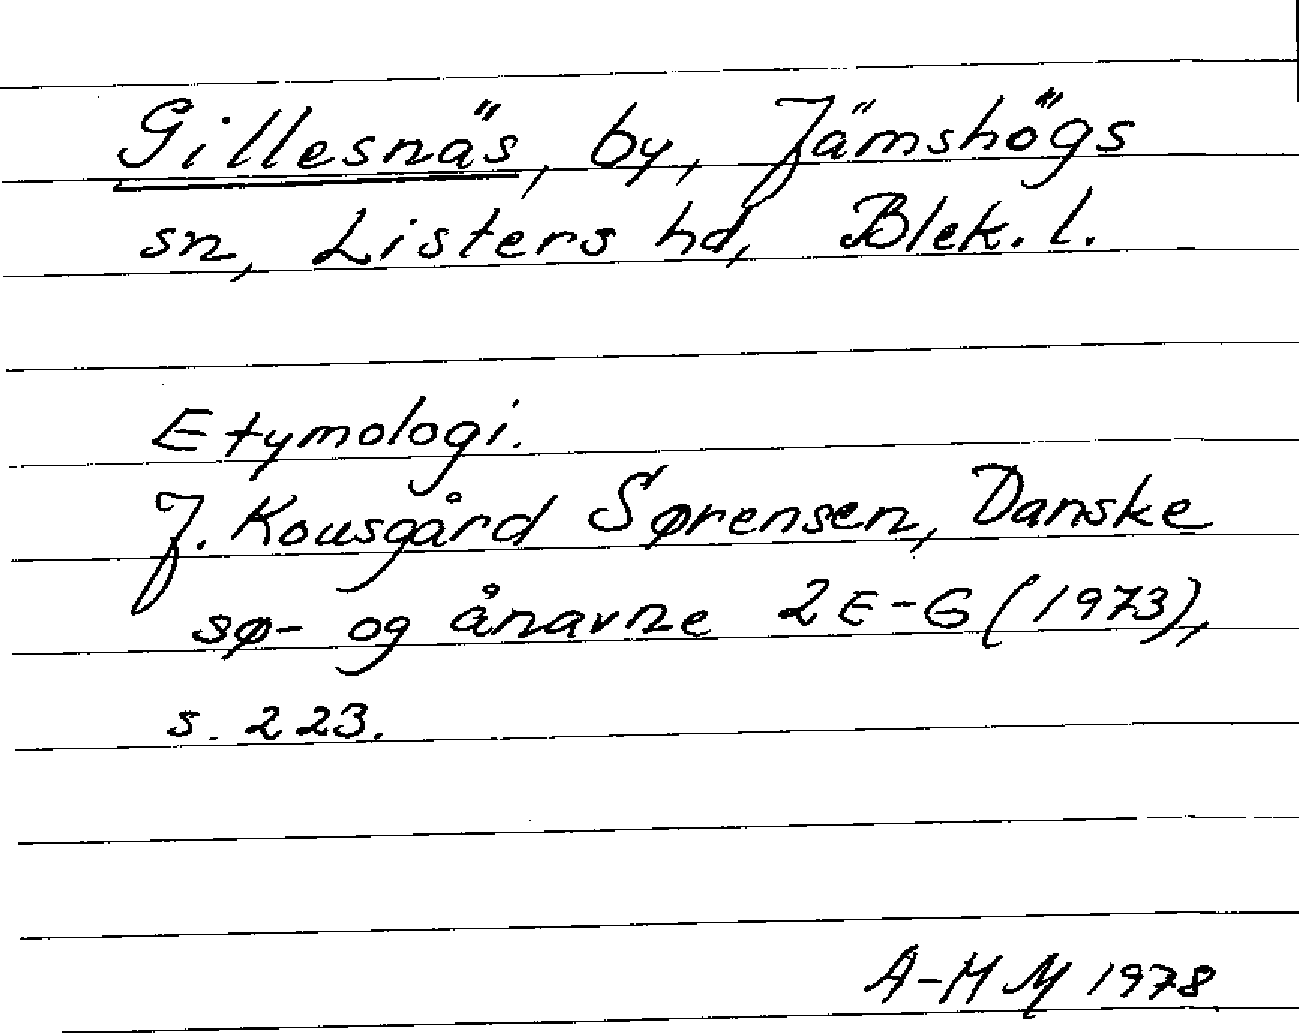 Gillesnäs, by, Jämshögs
sn, Listers hd, Blek. l.
Etymologi.
J. Kousgård Sørensen, Danske
sø- og ånavne 2 E-G (1973),
s. 223.
A-M M 1978